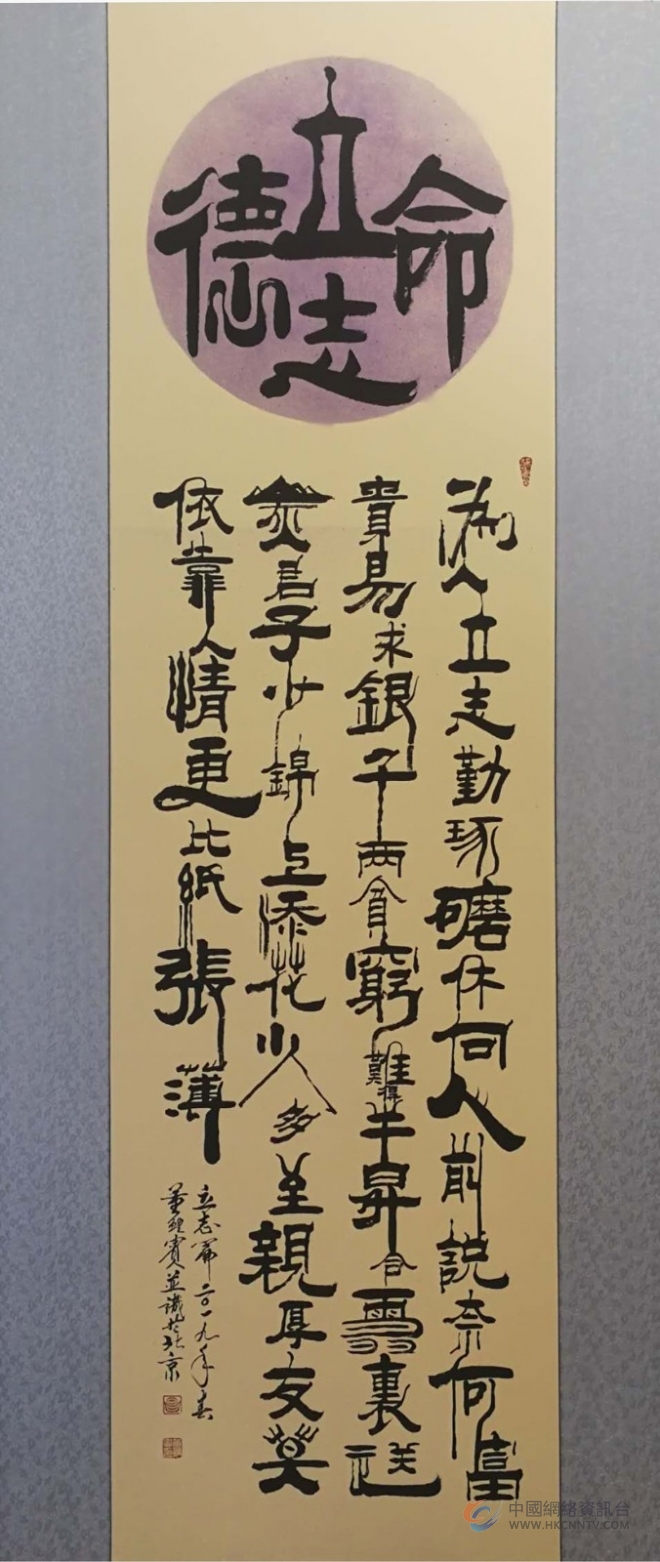 德立命
志
為人立志勤琢磨休向人前說奈何富
貴易求銀千兩貧窮難得半昇合雪裏送
炭君子少錦上添花小人多至親厚友莫
依靠人情更比紙張薄
立志篇二〇一九年春
董賓並識於北京
中國網絡資訊台
WWW.HKCNNTV.COM